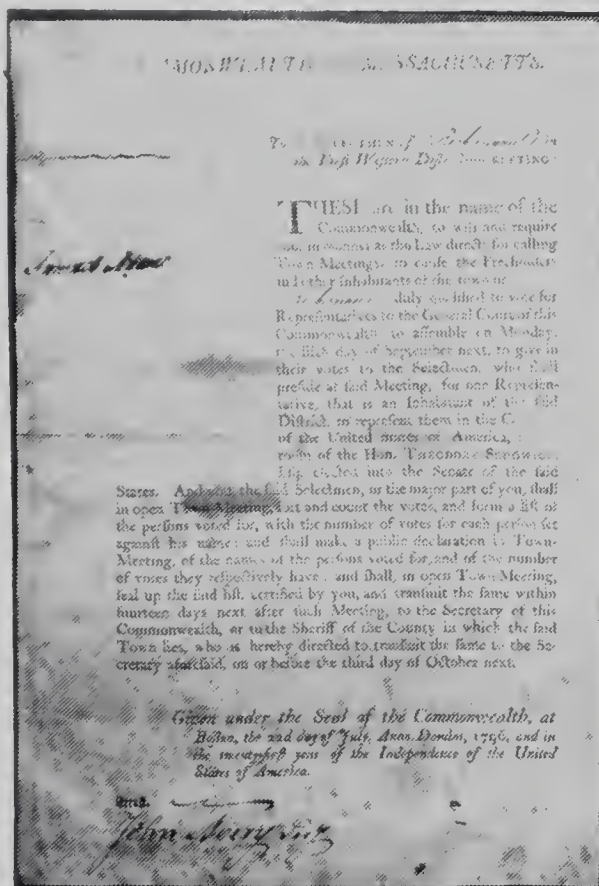 MONWEALTH MASSACHUSETTS.
To of
the First Western Distr GREETING
THESE are in the name of the
Commonwealth, to will and require
you, in manner as the Law directs for calling
Town Meetings, to cause the Freeholders
and other Inhabitants of the town of
duly qualified to vote for
Representatives to the General Court of this
Commonwealth to assemble on Monday,
the fifth day of September next, to give in
their votes to the Selectmen, who shall
preside at said Meeting, for one Represen-
tative, that is an Inhabitant of the said
District, to represent them in the C
of the United States of America,
room of the Hon. THEODORE SEDGWICK,
Esq. elected into the Senate of the said
States. And the said Selectmen, or the major part of you, shall
in open Town Meeting, sort and count the votes, and form a list of
the persons voted for, with the number of votes for each person set
against his name; and shall make a public declaration in Town-
Meeting, of the names of the persons voted for, and of the number
of votes they respectively have; and shall, in open Town Meeting,
seal up the said list, certified by you, and transmit the same within
fourteen days next after such Meeting, to the Secretary of this
Commonwealth, or to the Sheriff of the County in which the said
Town lies, who is hereby directed to transmit the same to the Se-
cretary aforesaid, on or before the third day of October next.
Given under the Seal of the Commonwealth, at
Boston, the 22d day of July, Anno Domini, 1796, and in
the twentyfirst year of the Independence of the United
States of America.
Attest.
John Avery Jun